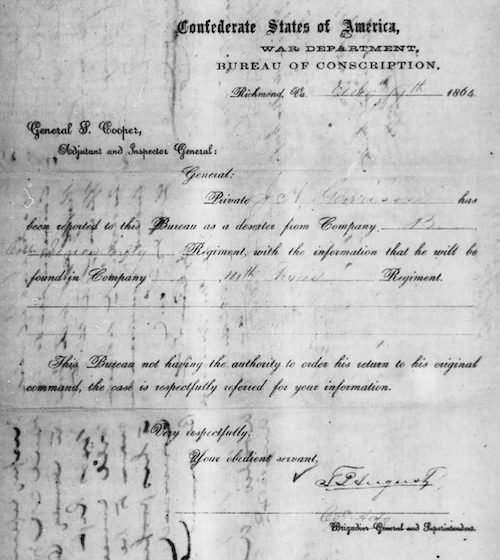 Confederate States of America,
WAR DEPARTMENT,
BUREAU OF CONSCRIPTION,
Richmond, Va. 1864
General S. Cooper,
Adjutant and Inspector General:
General:
Private J. H. has
been reported to this Bureau as a deserter from Company B
Regiment, with the information that he will be
found in Company 14th Regiment.
This Bureau not having the authority to order his return to his original
command, the case is respectfully referred for your information.
Very respectfully,
Your obedient servant,
Brigadier General and Superintendent.